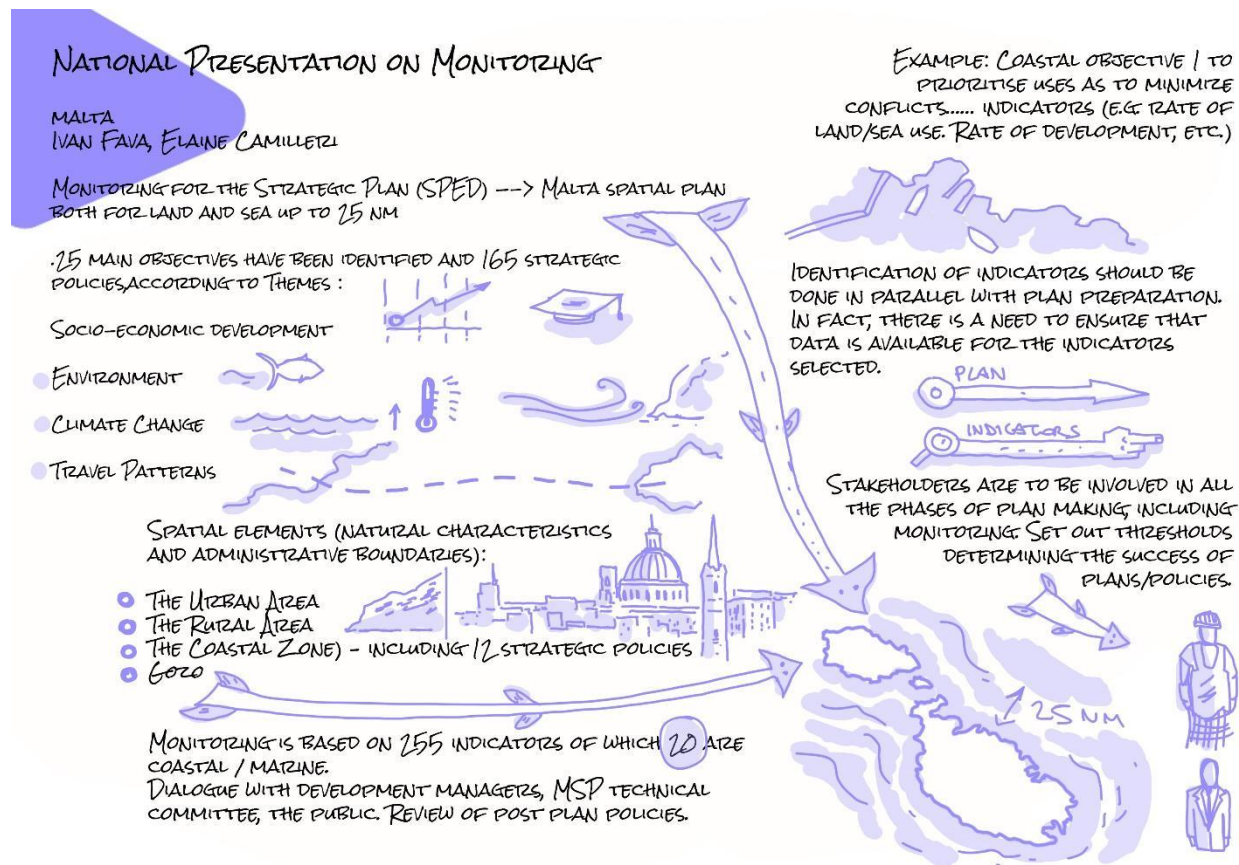 NATIONAL PRESENTATION ON MONITORING
MALTA
IVAN FAVA, ELAINE CAMILLERI
MONITORING FOR THE STRATEGIC PLAN (SPED) ---> MALTA SPATIAL PLAN
BOTH FOR LAND AND SEA UP TO 25 NM
.25 MAIN OBJECTIVES HAVE BEEN IDENTIFIED AND 165 STRATEGIC
POLICIES,ACCORDING TO THEMES :
SOCIO-ECONOMIC DEVELOPMENT
ENVIRONMENT
CLIMATE CHANGE
TRAVEL PATTERNS
SPATIAL ELEMENTS (NATURAL CHARACTERISTICS
AND ADMINISTRATIVE BOUNDARIES):
THE URBAN AREA
THE RURAL AREA
THE COASTAL ZONE) - INCLUDING 12 STRATEGIC POLICIES
GOZO
MONITORING IS BASED ON 255 INDICATORS OF WHICH 20 ARE
COASTAL / MARINE.
DIALOGUE WITH DEVELOPMENT MANAGERS, MSP TECHNICAL
COMMITTEE, THE PUBLIC. REVIEW OF POST PLAN POLICIES.
EXAMPLE: COASTAL OBJECTIVE 1 TO
PRIORITISE USES AS TO MINIMIZE
CONFLICTS..... INDICATORS (E.G. RATE OF
LAND/SEA USE. RATE OF DEVELOPMENT, ETC.)
IDENTIFICATION OF INDICATORS SHOULD BE
DONE IN PARALLEL WITH PLAN PREPARATION.
IN FACT, THERE IS A NEED TO ENSURE THAT
DATA IS AVAILABLE FOR THE INDICATORS
SELECTED.
PLAN
INDICATORS
STAKEHOLDERS ARE TO BE INVOLVED IN ALL
THE PHASES OF PLAN MAKING, INCLUDING
MONITORING. SET OUT THRESHOLDS
DETERMINING THE SUCCESS OF
PLANS/POLICIES.
25 NM